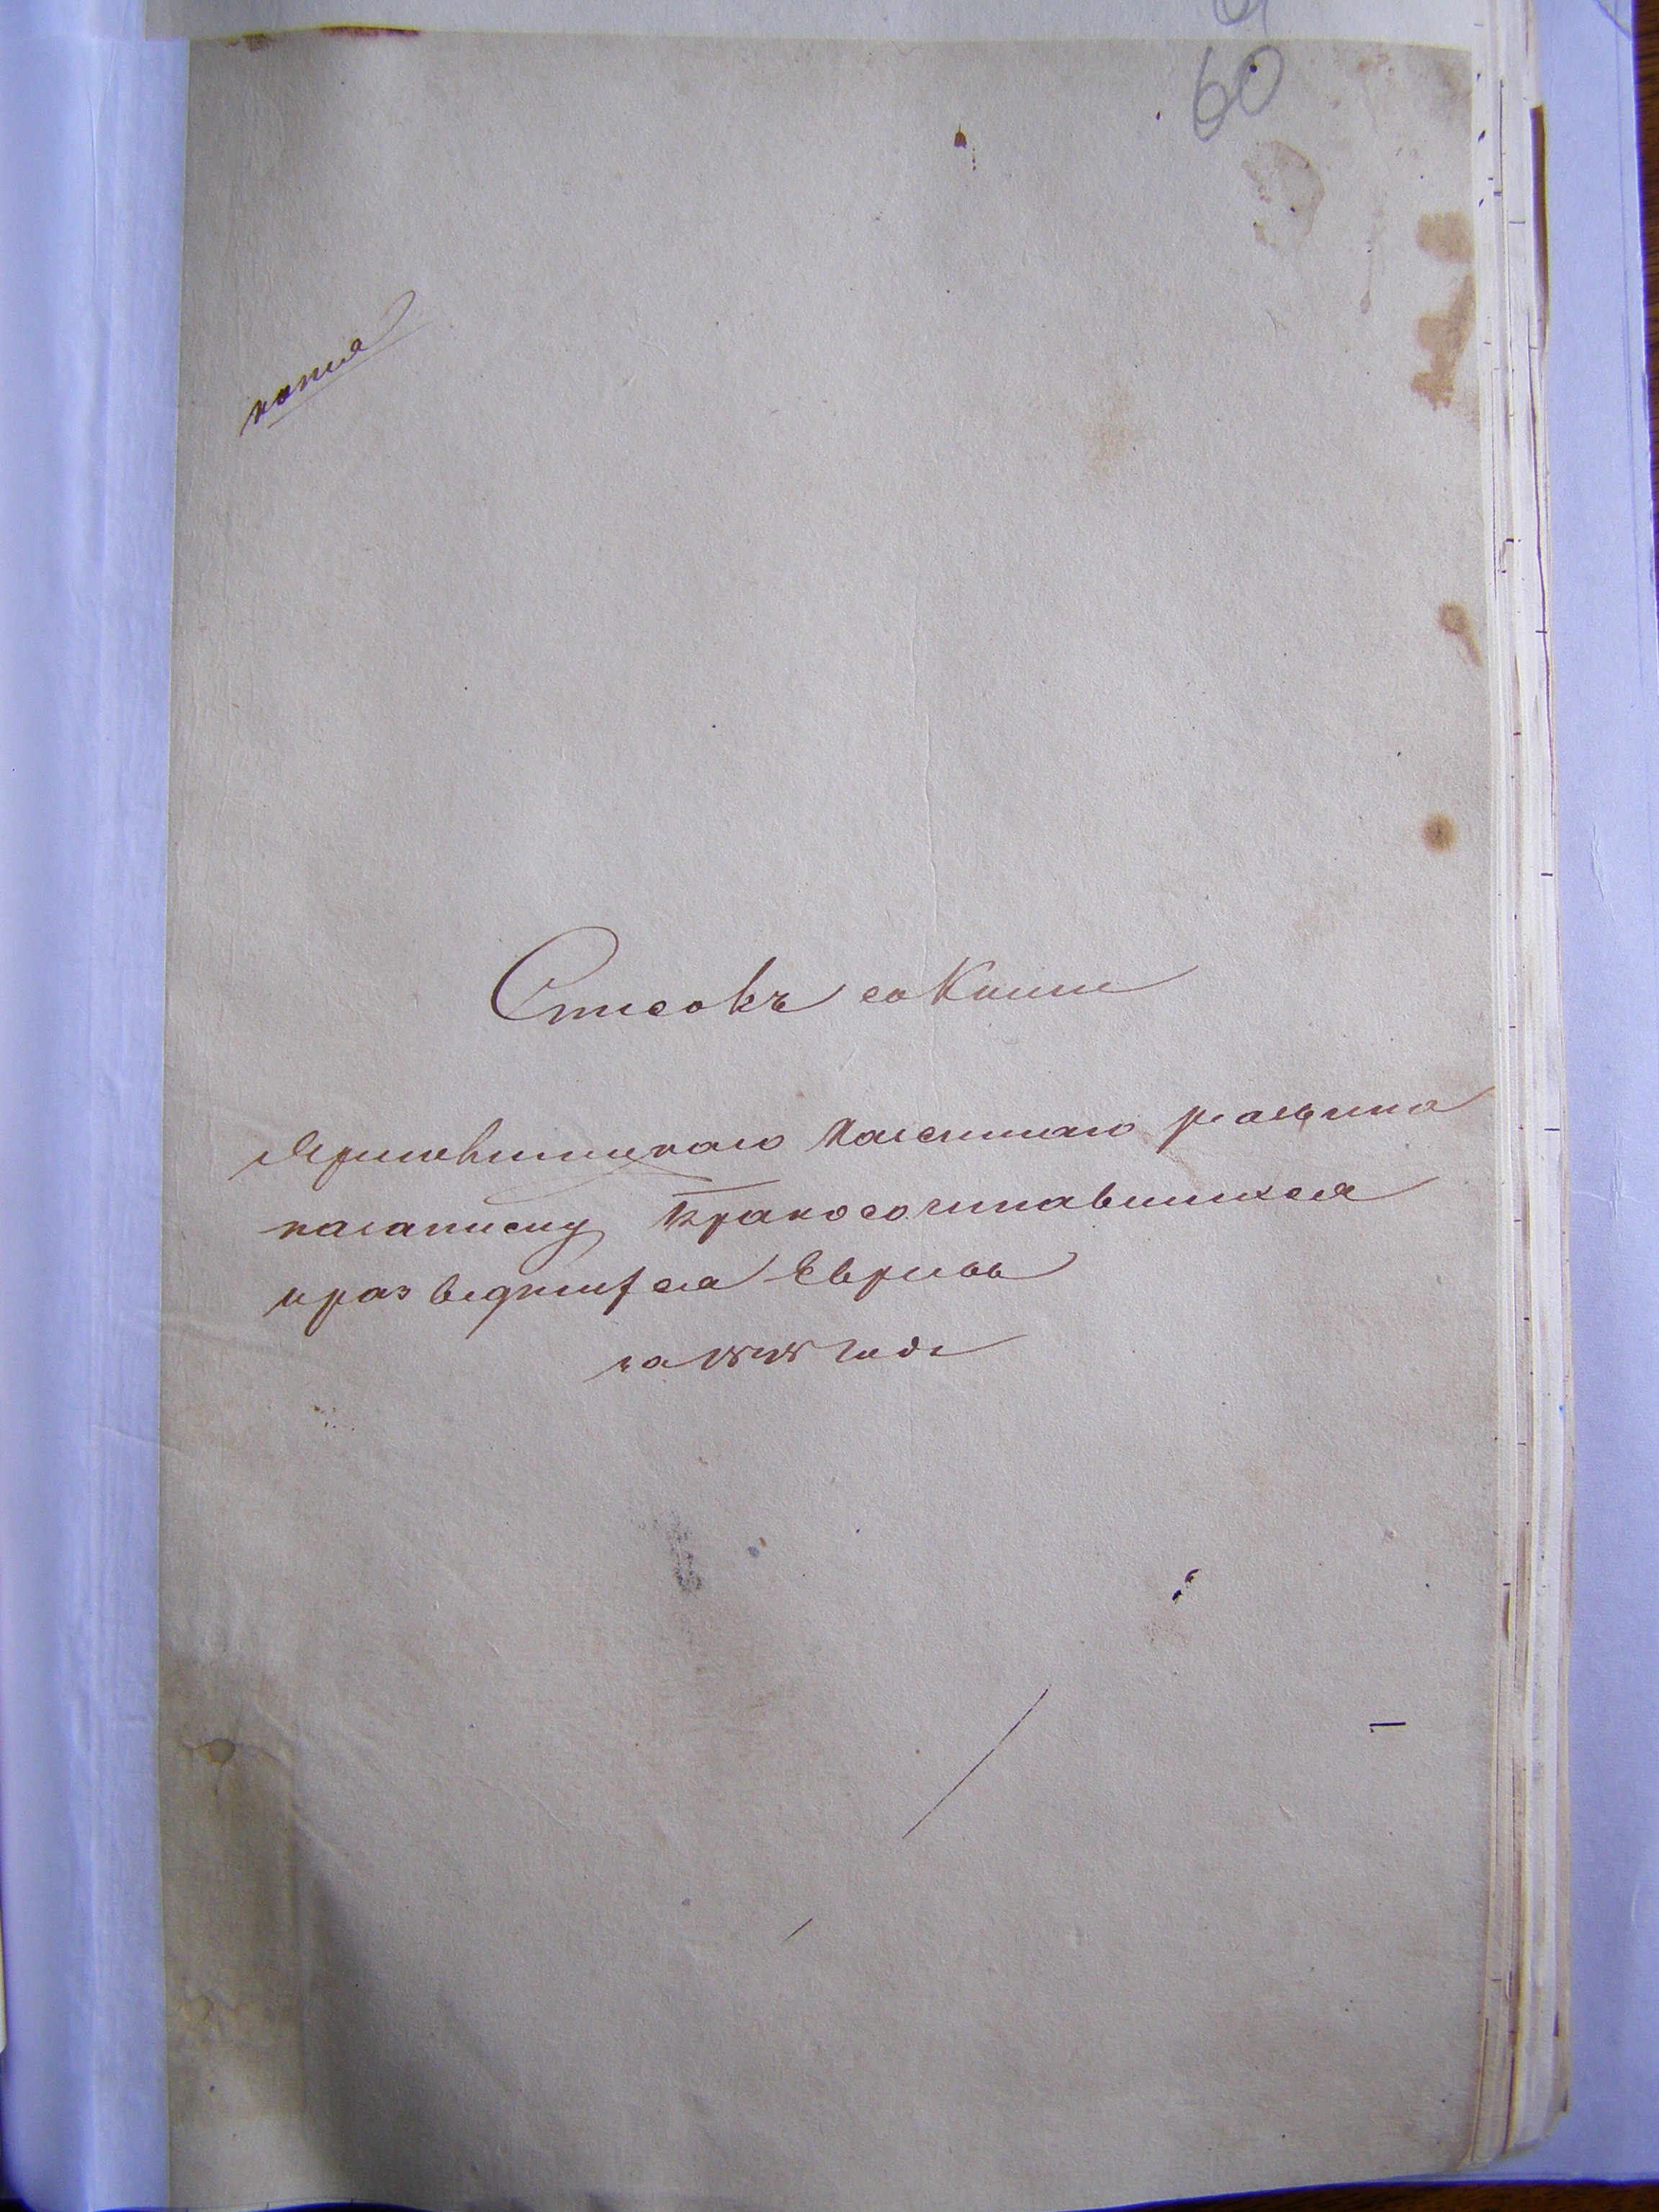 60
копия
Списокъ со Книги
Казеннаго раввина
по записку бракосочитавшихся
и разведшихся Евреевъ
за годъ